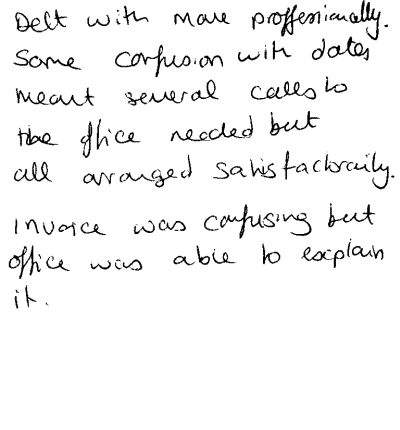 Delt with more proffessionally.
Some confusion with dates
meant several calls to
the office needed but
all arranged satisfactoraily.
Invoice was confusing but
office was able to explain
it.